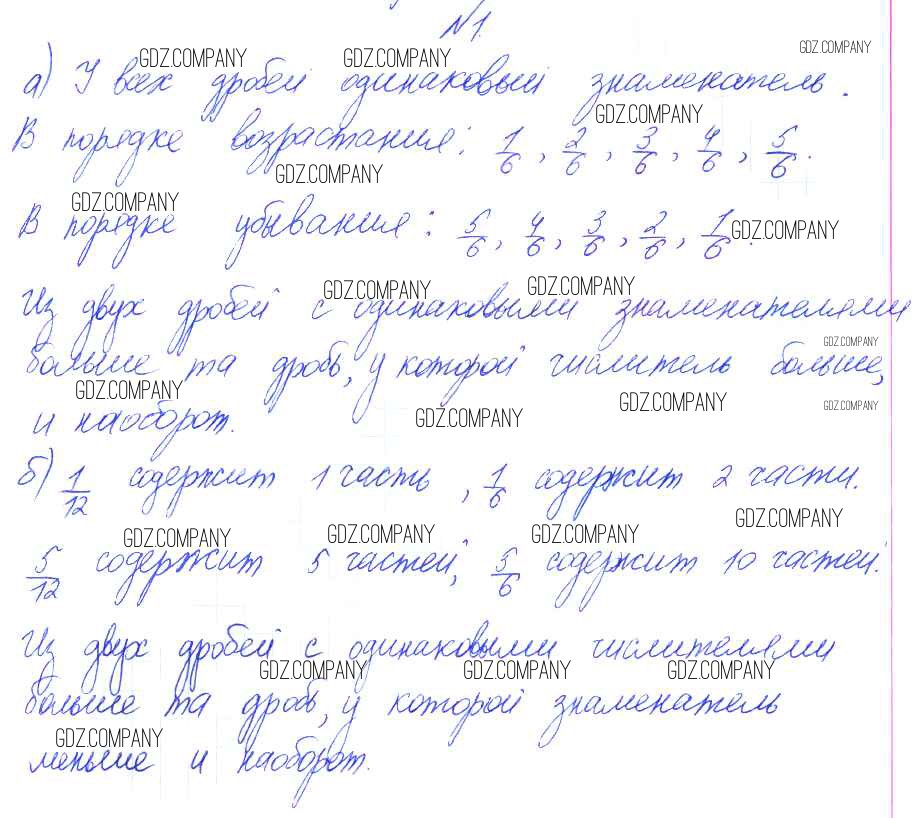 №1.
GDZ.COMPANY GDZ.COMPANY GDZ.COMPANY
а) У всех дробей одинаковый знаменатель.
GDZ.COMPANY
В порядке возрастания: 1/6, 2/6, 3/6, 4/6, 5/6.
GDZ.COMPANY
GDZ.COMPANY
В порядке убывания: 5/6, 4/6, 3/6, 2/6, 1/6.
GDZ.COMPANY
GDZ.COMPANY GDZ.COMPANY
Из двух дробей с одинаковыми знаменателями
GDZ.COMPANY
больше та дробь, у которой числитель больше,
GDZ.COMPANY GDZ.COMPANY GDZ.COMPANY GDZ.COMPANY
и наоборот.
б) 1/12 содержит 1 часть, 1/6 содержит 2 части.
GDZ.COMPANY GDZ.COMPANY GDZ.COMPANY GDZ.COMPANY
5/12 содержит 5 частей, 5/6 содержит 10 частей.
Из двух дробей с одинаковыми числителями
GDZ.COMPANY GDZ.COMPANY GDZ.COMPANY
больше та дробь, у которой знаменатель
GDZ.COMPANY
меньше и наоборот.